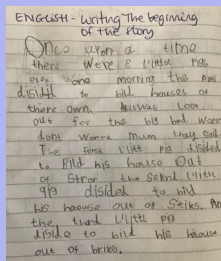 English - writing the beginning
of the story
Once upon a time
there were 3 littol Pigs
one morning the Pigs
disidid to bild houses of
there own. Look
out for the big bad
dont Mum they said.
The ferst littl Pig disided
to Bild his house Out
of Straw the Sekind littl
Pig disided to bild
his haouse out of Stiks. And
the third littl Pig
diside to bild his haouse
out of briks.